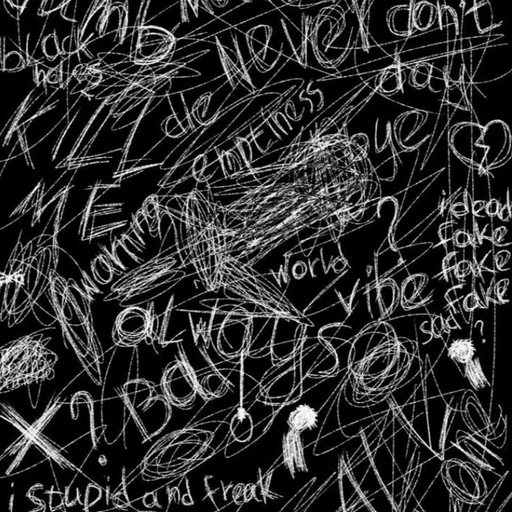 dumb
Never
don't
day
black
holes
die
emptiness
bye
KILL
ME
warning
?
i dead
fake
fake
fake
sad
?
world
vibe
always
Bad
X?
Alive
i stupid and freak